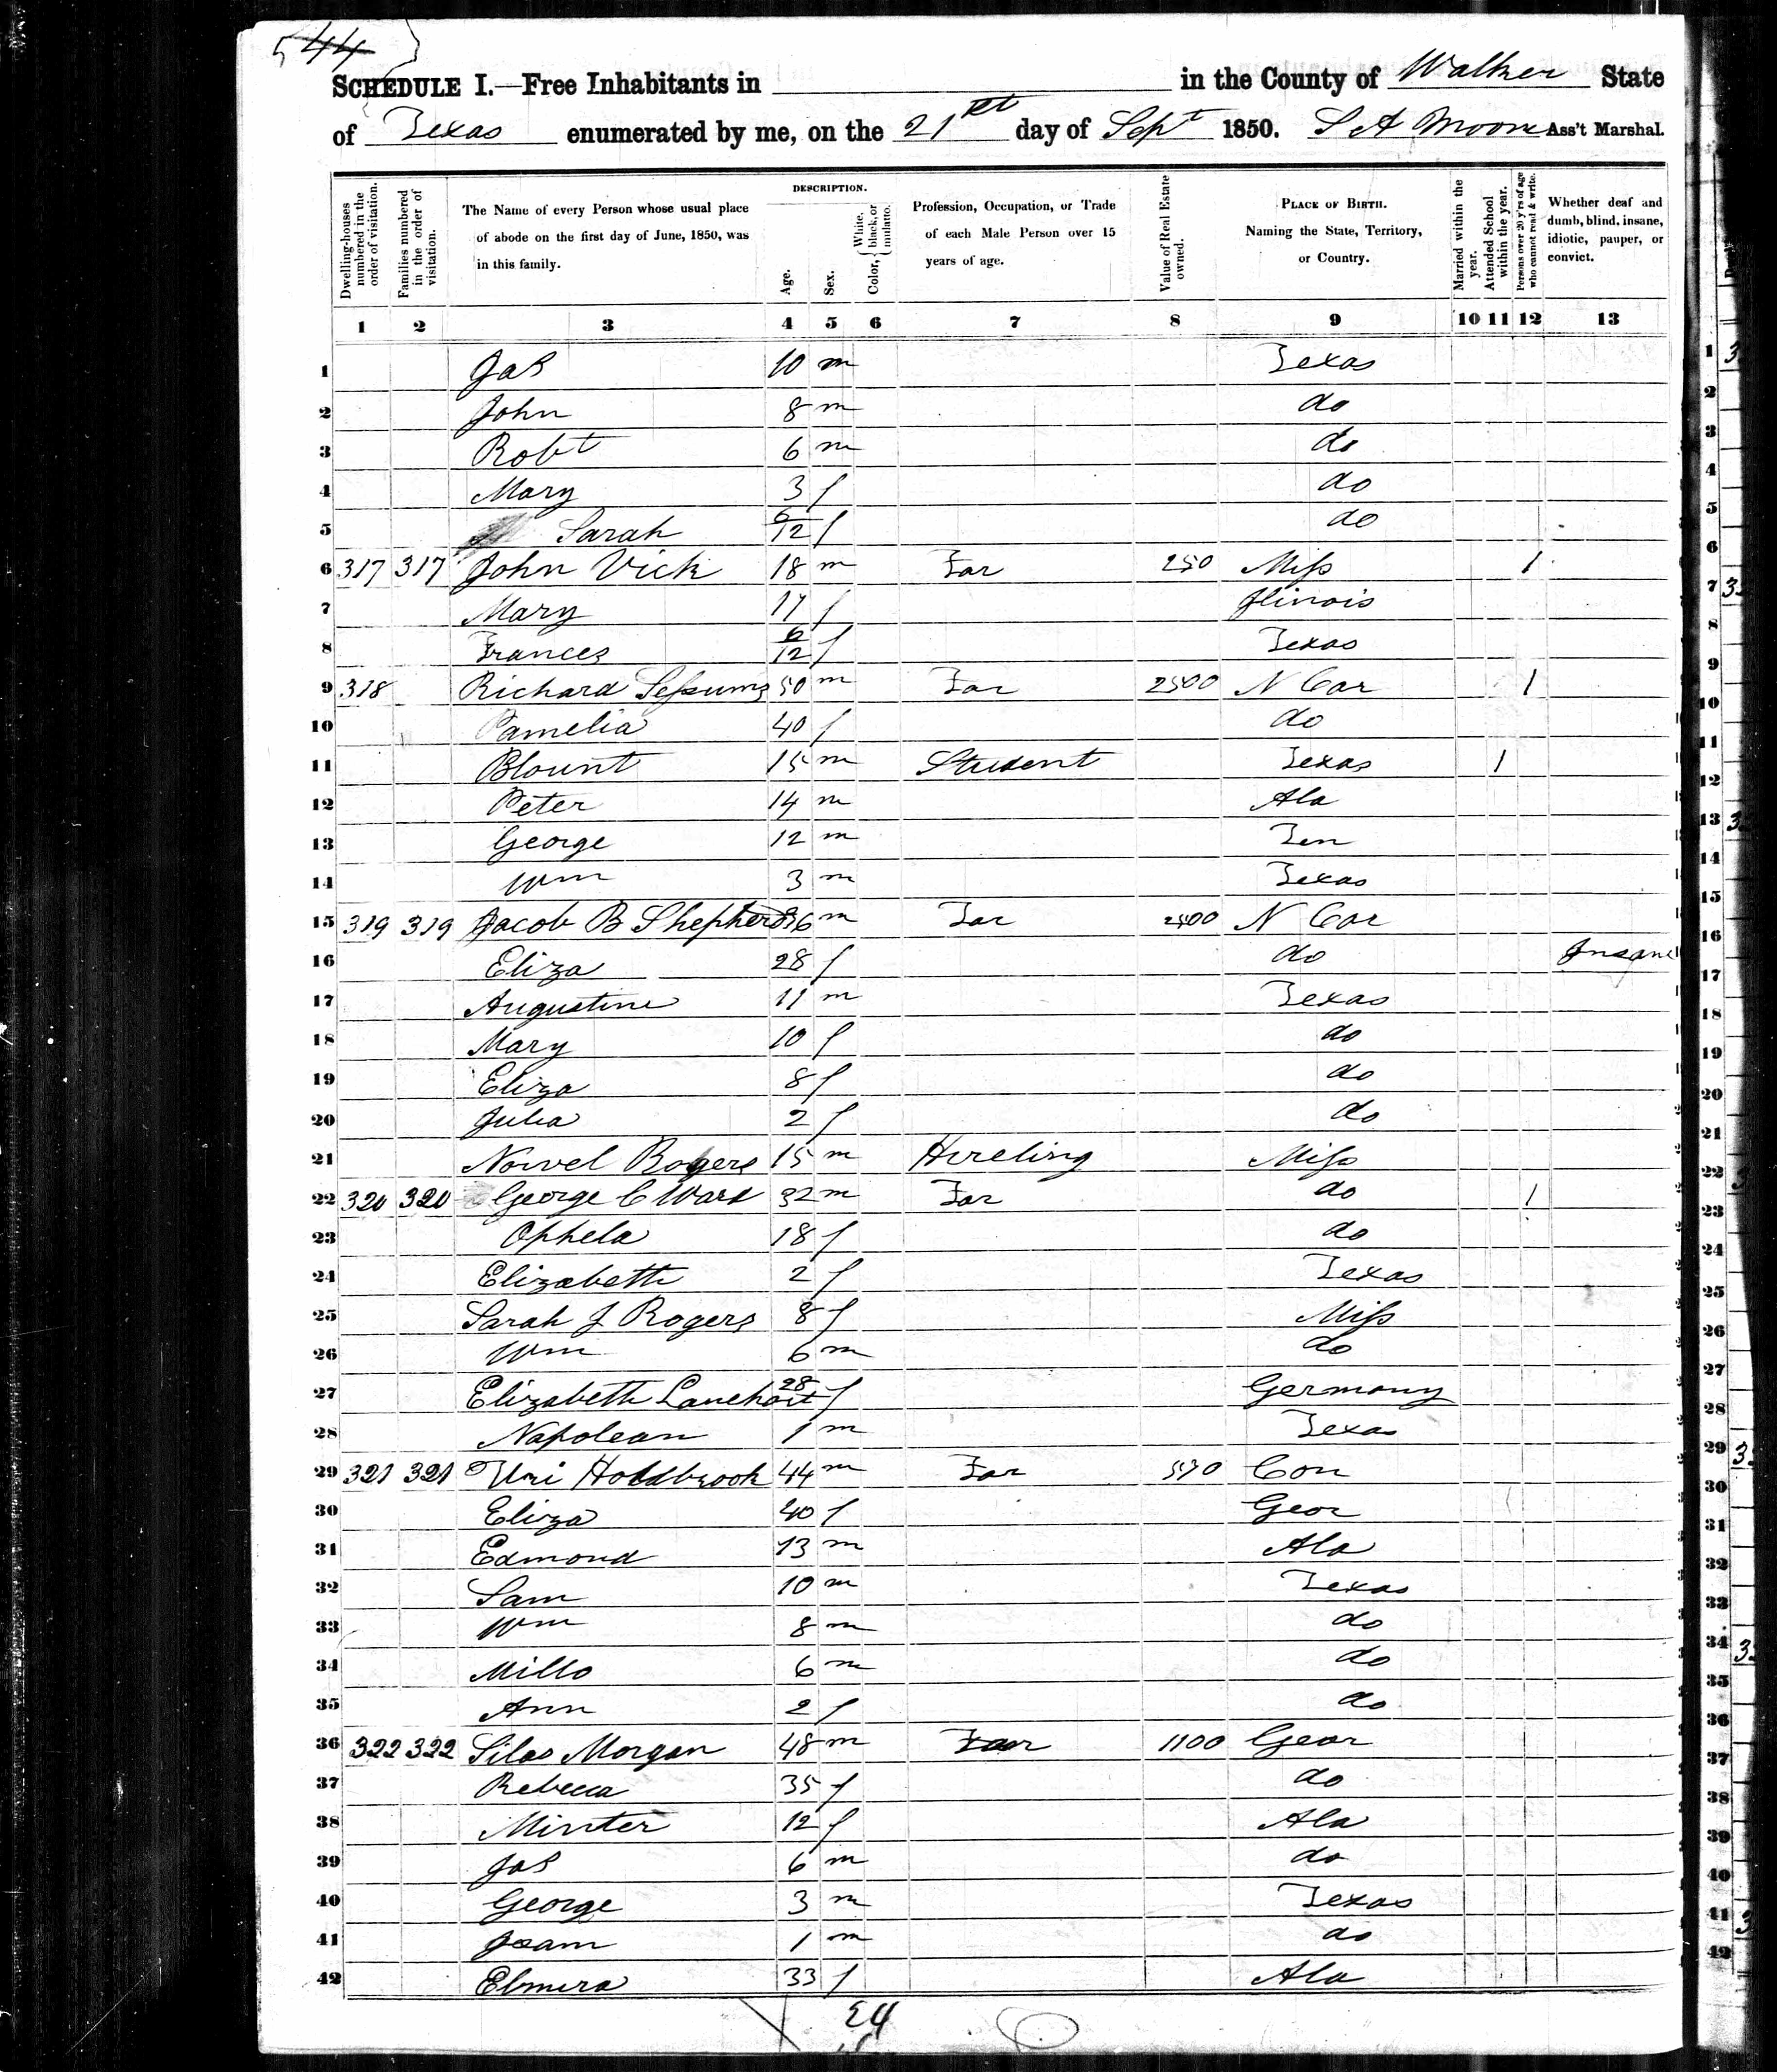 44
SCHEDULE I.—Free Inhabitants in in the County of Walker State
of Texas enumerated by me, on the 21st day of Sept 1850. S A Moore Ass't Marshal.
Dwelling-houses numbered in the order of visitation.
Families numbered in the order of visitation.
The Name of every Person whose usual place of abode on the first day of June, 1850, was in this family.
DESCRIPTION.
Age.
Sex.
Color, { White, black, or mulatto.
Profession, Occupation, or Trade of each Male Person over 15 years of age.
Value of Real Estate owned.
PLACE OF BIRTH. Naming the State, Territory, or Country.
Married within the year.
Attended School within the year.
Persons over 20 y'rs of age who cannot read & write.
Whether deaf and dumb, blind, insane, idiotic, pauper, or convict.
1 2 3 4 5 6 7 8 9 10 11 12 13
1 Jas 10 m Texas
2 John 8 m do
3 Robt 6 m do
4 Mary 3 f do
5 Sarah 6/12 f do
6 317 317 John Vick 18 m Far 250 Miss 1
7 Mary 17 f Ilinois
8 Frances 6/12 f Texas
9 318 Richard Sessums 50 m Far 2500 N Car 1
10 Pamelia 40 f do
11 Blount 15 m Student Texas 1
12 Peter 14 m Ala
13 George 12 m Ten
14 Wm 3 m Texas
15 319 319 Jacob B Shepherd 36 m Far 2500 N Car
16 Eliza 28 f do Insane
17 Augustine 11 m Texas
18 Mary 10 f do
19 Eliza 8 f do
20 Julia 2 f do
21 Norvel Rogers 15 m Hireling Miss
22 320 320 George C Ward 32 m Far do 1
23 Ophela 18 f do
24 Elizabeth 2 f Texas
25 Sarah J Rogers 8 f Miss
26 Wm 6 m do
27 Elizabeth Lanehart 28 f Germany
28 Napolean 1 m Texas
29 321 321 Uri Holdbrook 44 m Far 570 Con
30 Eliza 40 f Geor
31 Edmond 13 m Ala
32 Sam 10 m Texas
33 Wm 8 m do
34 Millo 6 m do
35 Ann 2 f do
36 322 322 Silas Morgan 48 m Far 1100 Geor
37 Rebecca 35 f do
38 Minter 12 f Ala
39 Jas 6 m do
40 George 3 m Texas
41 Joam 1 m do
42 Elmira 33 f Ala
24